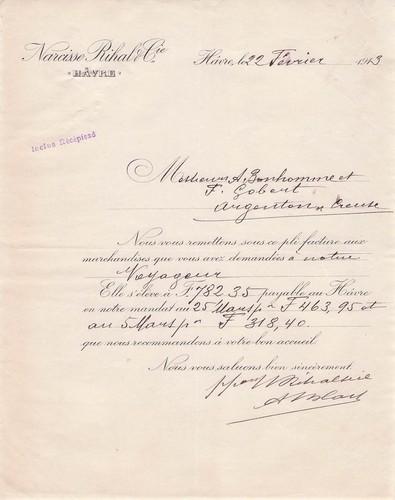 Narcisse Rihal & Cie
HÂVRE
Hâvre, le 22 Février 1913
Inclus Récépissé
Messieurs A. Bonhomme et
F. Gobert
Argenton s/ Creuse
Nous vous remettons sous ce pli facture aux
marchandises que vous avez demandées à notre
Voyageur
Elle s'élève à F. 782.35 payable au Hâvre
en notre mandat au 25 Mars pn F 463,95 et
au 5 Mars pn F 318,40.
que nous recommandons à votre bon accueil
Nous vous saluons bien sincèrement
ppon N Rihal & Cie